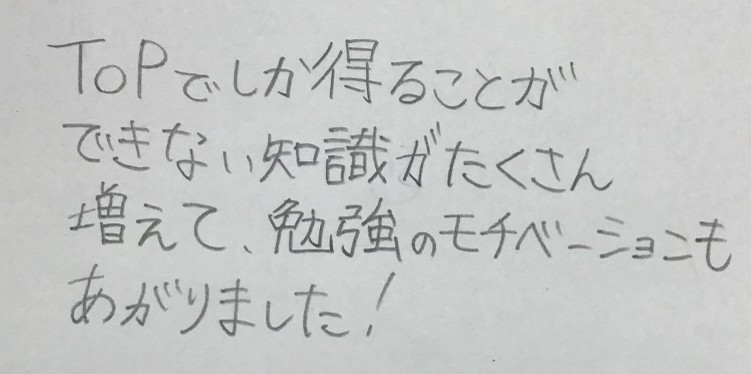 TOPでしか得ることが
できない知識がたくさん
増えて、勉強のモチベーションも
あがりました!